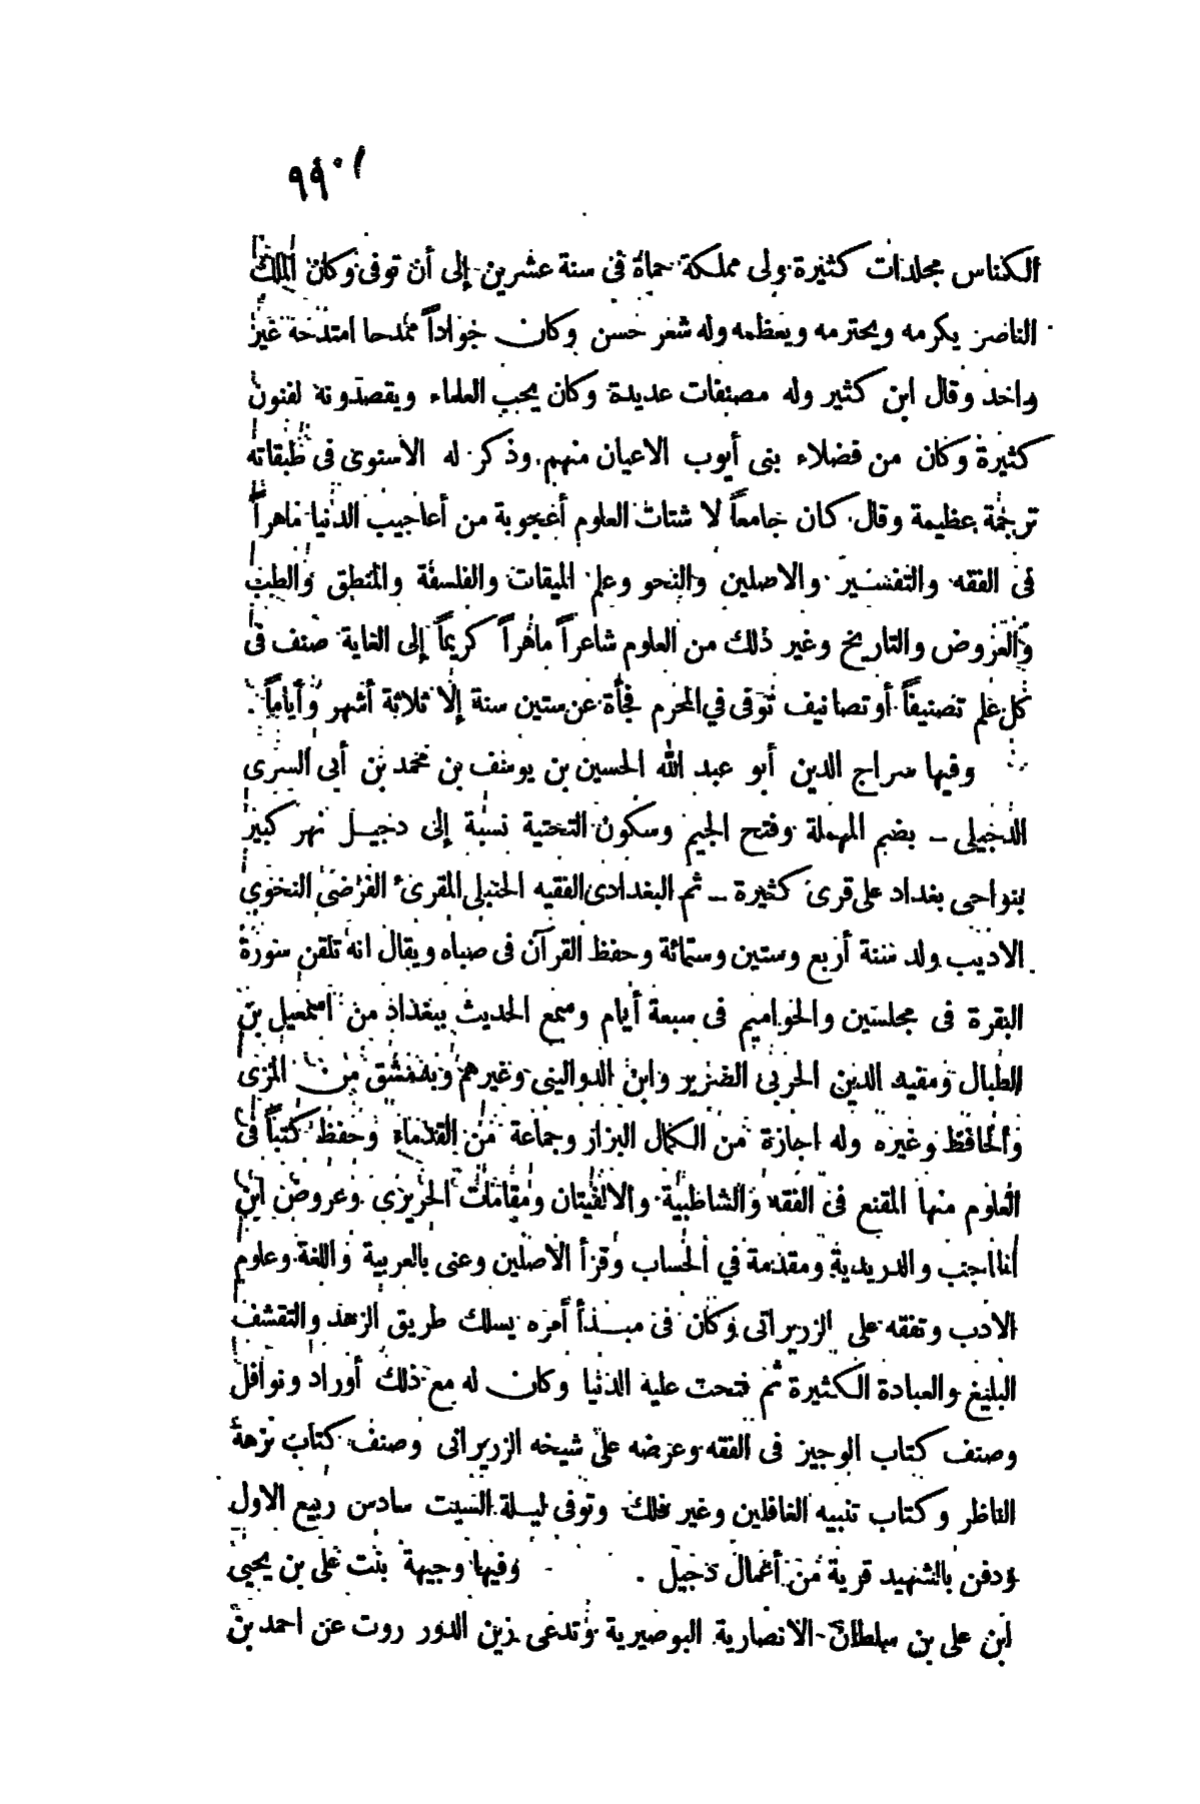 ٩٩
الكناس مجلدات كثيرة ولى مملكة حماة فى سنة عشرين إلى أن توفى وكان الملك
الناصر يكرمه ويحترمه ويعظمه وله شعر حسن وكان جواداً ممدحا امتدحه غير
واحد وقال ابن كثير وله مصنفات عديدة وكان يحب العلماء ويقصدونه لفنون
كثيرة وكان من فضلاء بنى أيوب الاعيان منهم. وذكر له الأسنوى فى طبقاته
ترجمة عظيمة وقال كان جامعاً لا شتات العلوم أعجوبة من أعاجيب الدنيا ماهراً
فى الفقه والتفسير والاصلين والنحو وعلم الميقات والفلسفة والمنطق والطب
والعروض والتاريخ وغير ذلك من العلوم شاعراً ماهراً كريماً إلى الغاية صنف فى
كل علم تصنيفاً أو تصانيف توفى في المحرم فجأة عن ستين سنة إلا ثلاثة أشهر وأياماً .
وفيها سراج الدين أبو عبد الله الحسين بن يوسف بن محمد بن أبى السرى
الدجيلى – بضم المهملة وفتح الجيم وسكون التحتية نسبة إلى دجيل نهر كبير
بنواحى بغداد على قرى كثيرة – ثم البغدادى الفقيه الحنبلى المقرئ الفرضى النحوى
الاديب ولد سنة أربع وستين وستمائة وحفظ القرآن فى صباه ويقال انه تلقن سورة
البقرة فى مجلسين والحواميم فى سبعة أيام وسمع الحديث ببغداد من اسمعيل بن
الطبال ومفيد الدين الحربى الضرير وابن الدواليبى وغيرهم وبدمشق من المزى
والحافظ وغيره وله اجازة من الكمال البزاز وجماعة من القدماء وحفظ كتباً فى
العلوم منها المقنع فى الفقه والشاطبية والالفيتان ومقامات الحريرى وعروض ابن
الحاجب والدريدية ومقدمة في الحساب وقرأ الاصلين وعنى بالعربية واللغة وعلوم
الادب وتفقه على الزريراتى وكان فى مبدأ أمره يسلك طريق الزهد والتقشف
البليغ والعبادة الكثيرة ثم فتحت عليه الدنيا وكان له مع ذلك أوراد ونوافل
وصنف كتاب الوجيز فى الفقه وعرضه على شيخه الزريرانى وصنف كتاب نزهة
الناظر وكتاب تنبيه الغافلين وغير ذلك وتوفى ليلة السبت سادس ربيع الاول
ودفن بالشهيد قرية من أعمال دجيل . وفيها وجيهة بنت على بن يحيى
ابن على بن سلطان الانصارية البوصيرية وتدعى زين الدور روت عن احمد بن